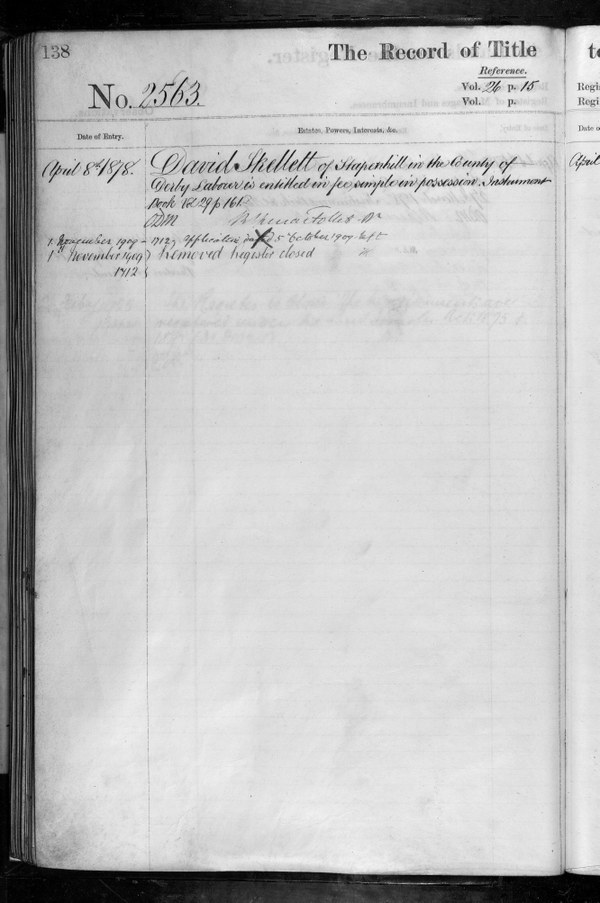 138
The Record of Title
to
Reference.
No. 2563.
Vol. 26 p. 15
Vol. p.
Regi
Regi
Date of Entry.
Estates, Powers, Interests, &c.
Date o
April 8th 1878.
David Skellett of Stapenhill in the County of
April
Derby Labourer is entitled in fee simple in possession. Instrument
Book Vol 29 p 161.
1 November 1909 1712 application dated 5 October 1909 left
1st November 1909 removed Register closed
1712